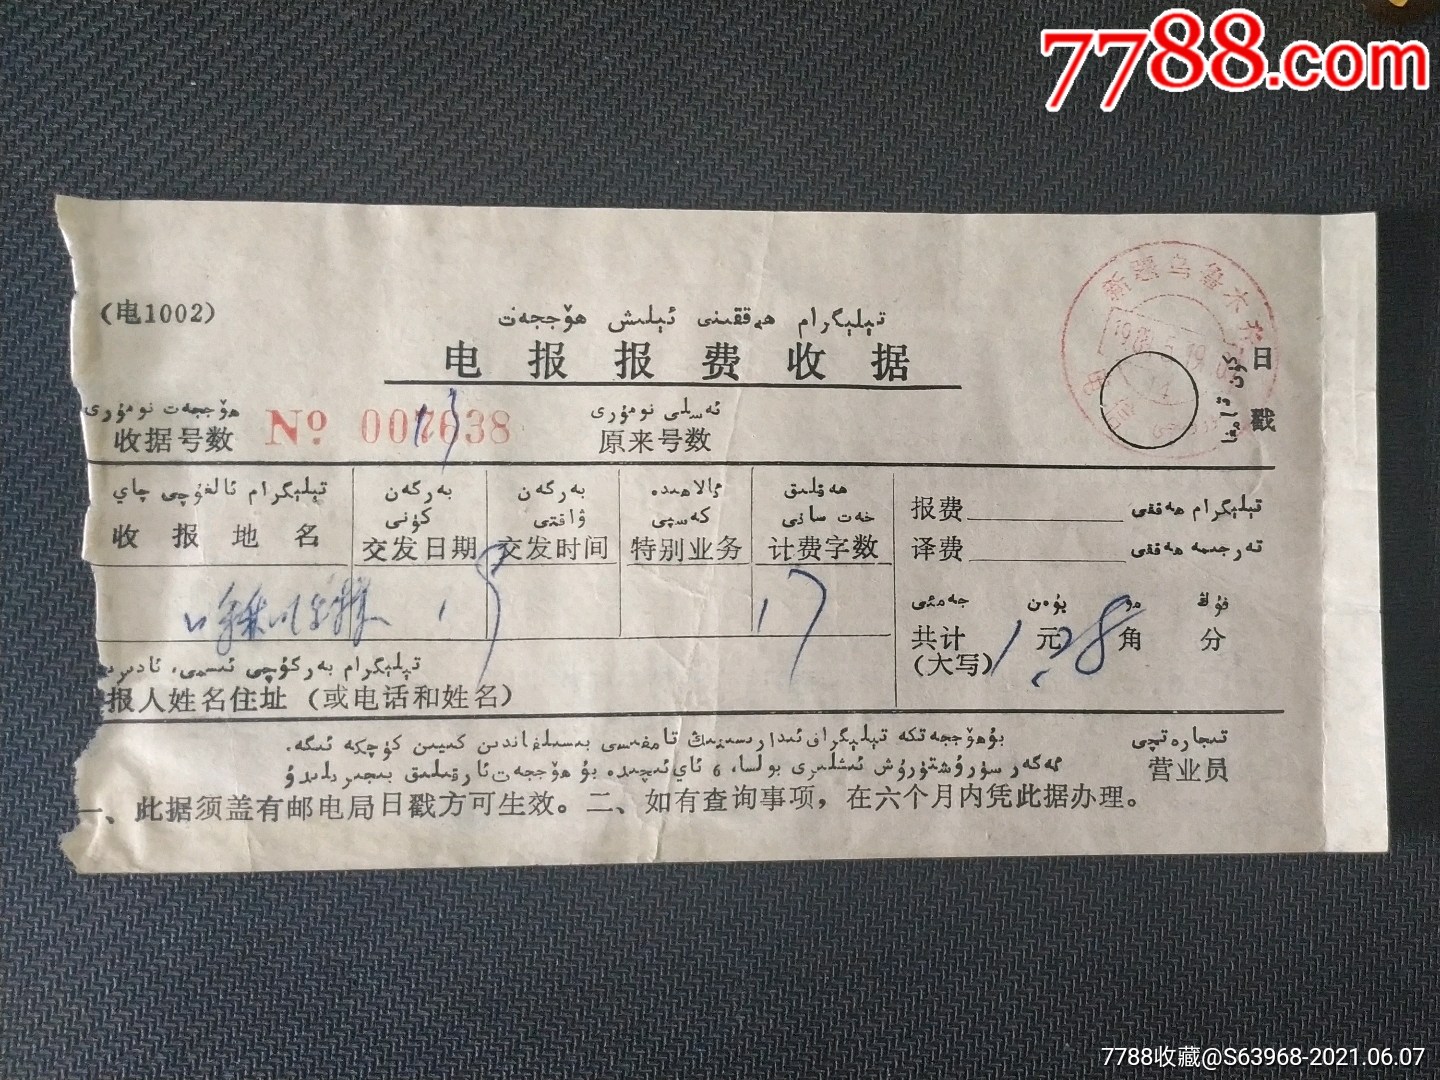 7788.com
(电1002)
تېلېگرام ھەققىنى ئېلىش ھۆججەت
电报报费收据
ھۆججەت نومۇرى
收据号数 № 007638
ئەسلى نومۇرى
原来号数
كۈن تامغا
日戳
新疆乌鲁木齐
تېلېگرام ئالغۇچى جاي
收报地名
بەرگەن كۈنى
交发日期
بەرگەن ۋاقتى
交发时间
ئالاھىدە كەسپى
特别业务
ھەقلىق خەت سانى
计费字数
17
报费 تېلېگرام ھەققى
译费 تەرجىمە ھەققى
جەمئى يۈەن مو فۇڭ
共计 1元.28角 分
(大写)
تېلېگرام بەرگۈچى ئىسمى، ئادرىس
报人姓名住址(或电话和姓名)
بۇھۆججەتكە تېلېگراف ئىدارىسىنىڭ تامغىسى بېسىلغاندىن كىيىن كۈچكە ئىگە.
ئەگەر سۈرۈشتۈرۈش ئىشلىرى بولسا، 6 ئاي ئىچىدە بۇ ھۆججەت ئارقىلىق بىجىرىلىدۇ
تىجارەتچى
营业员
一、此据须盖有邮电局日戳方可生效。二、如有查询事项,在六个月内凭此据办理。
7788收藏@S63968-2021.06.07